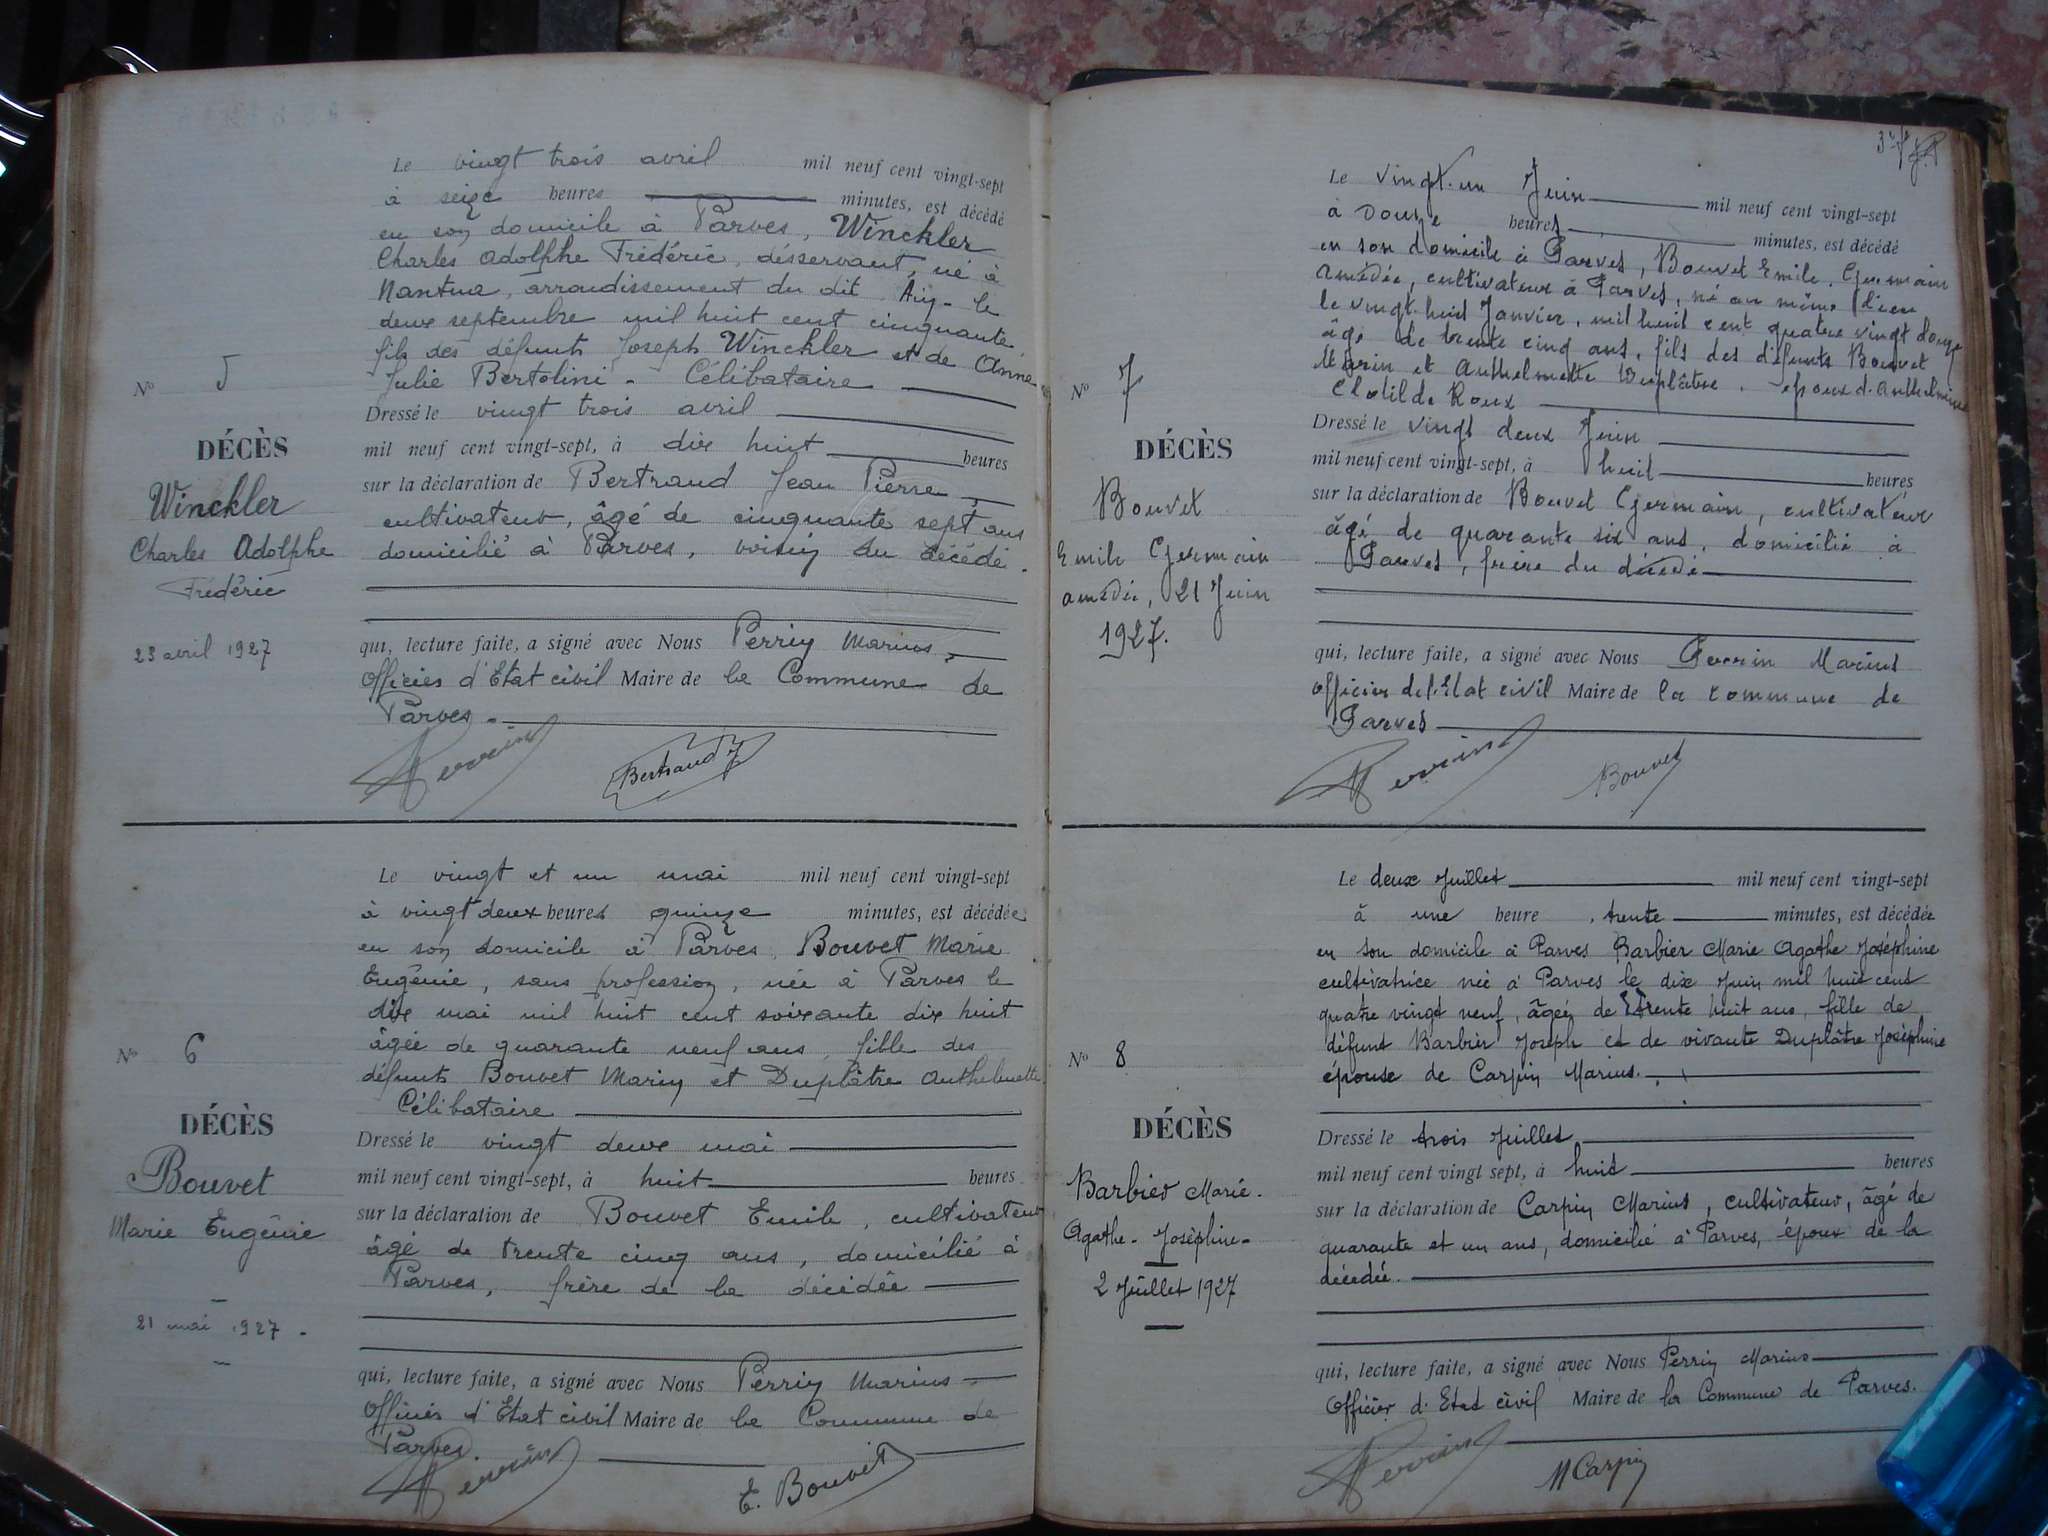 Le vingt trois avril mil neuf cent vingt-sept
à seize heures minutes, est décédé
en son domicile à Parves, Winckler
Charles Adolphe Frédéric, désservant, né à
Nantua, arrondissement du dit Ain - le
deux septembre mil huit cent cinquante,
fils des défunts Joseph Winckler et de Anne
Julie Bertolini - Célibataire
Nº 5
DÉCÈS
Winckler
Charles Adolphe
Frédéric
23 avril 1927
Dressé le vingt trois avril
mil neuf cent vingt-sept, à dix huit heures
sur la déclaration de Bertrand Jean Pierre,
cultivateur, âgé de cinquante sept ans
domicilié à Parves, voisin du décédé.
qui, lecture faite, a signé avec Nous Perrin Marius,
Officier d'Etat civil Maire de la Commune de
Parves -
Perrin Bertrand J
Le vingt et un mai mil neuf cent vingt-sept
à vingt deux heures quinze minutes, est décédée
en son domicile à Parves, Bouvet Marie
Eugénie, sans profession, née à Parves le
dix mai mil huit cent soixante dix huit
âgée de quarante neuf ans, fille des
défunts Bouvet Marin et Duplâtre Anthelmette
Célibataire
Nº 6
DÉCÈS
Bouvet
Marie Eugénie
21 mai 1927.
Dressé le vingt deux mai
mil neuf cent vingt-sept, à huit heures
sur la déclaration de Bouvet Emile, cultivateur
âgé de trente cinq ans, domicilié à
Parves, frère de la décédée
qui, lecture faite, a signé avec Nous Perrin Marius
Officier d'Etat civil Maire de la Commune de
Parves.
Perrin E. Bouvet
Le vingt-un Juin mil neuf cent vingt-sept
à Douze heures minutes, est décédé
en son domicile à Parves, Bouvet Emile, Germain
amédée, cultivateur à Parves, né au même lieu
le vingt-huit Janvier, mil huit cent quatre vingt douze
âgé de trente cinq ans, fils des défunts Bouvet
Marin et Anthelmette Duplâtre, époux d'Anthelmine
Clotilde Roux
Nº 7
DÉCÈS
Bouvet
Emile Germain
amédée, 21 Juin
1927.
Dressé le vingt deux Juin
mil neuf cent vingt-sept, à huit heures
sur la déclaration de Bouvet Germain, cultivateur
âgé de quarante six ans, domicilié à
Parves, frère du décédé
qui, lecture faite, a signé avec Nous Perrin Marius
officier de l'Etat civil Maire de la commune de
Parves
Perrin Bouvet
Le deux Juillet mil neuf cent vingt-sept
à une heure, trente minutes, est décédée
en son domicile à Parves Barbier Marie Agathe Joséphine
cultivatrice née à Parves le dix Juin mil huit cent
quatre vingt neuf, âgée de trente huit ans, fille de
défunt Barbier Joseph et de vivante Duplâtre Joséphine
épouse de Carpin Marius.
Nº 8
DÉCÈS
Barbier Marie-
Agathe-Joséphine-
2 Juillet 1927
Dressé le trois Juillet
mil neuf cent vingt sept, à huit heures
sur la déclaration de Carpin Marius, cultivateur, âgé de
quarante et un ans, domicilié à Parves, époux de la
décédée.
qui, lecture faite, a signé avec Nous Perrin Marius
Officier d'Etat civil Maire de la Commune de Parves.
Perrin M Carpin